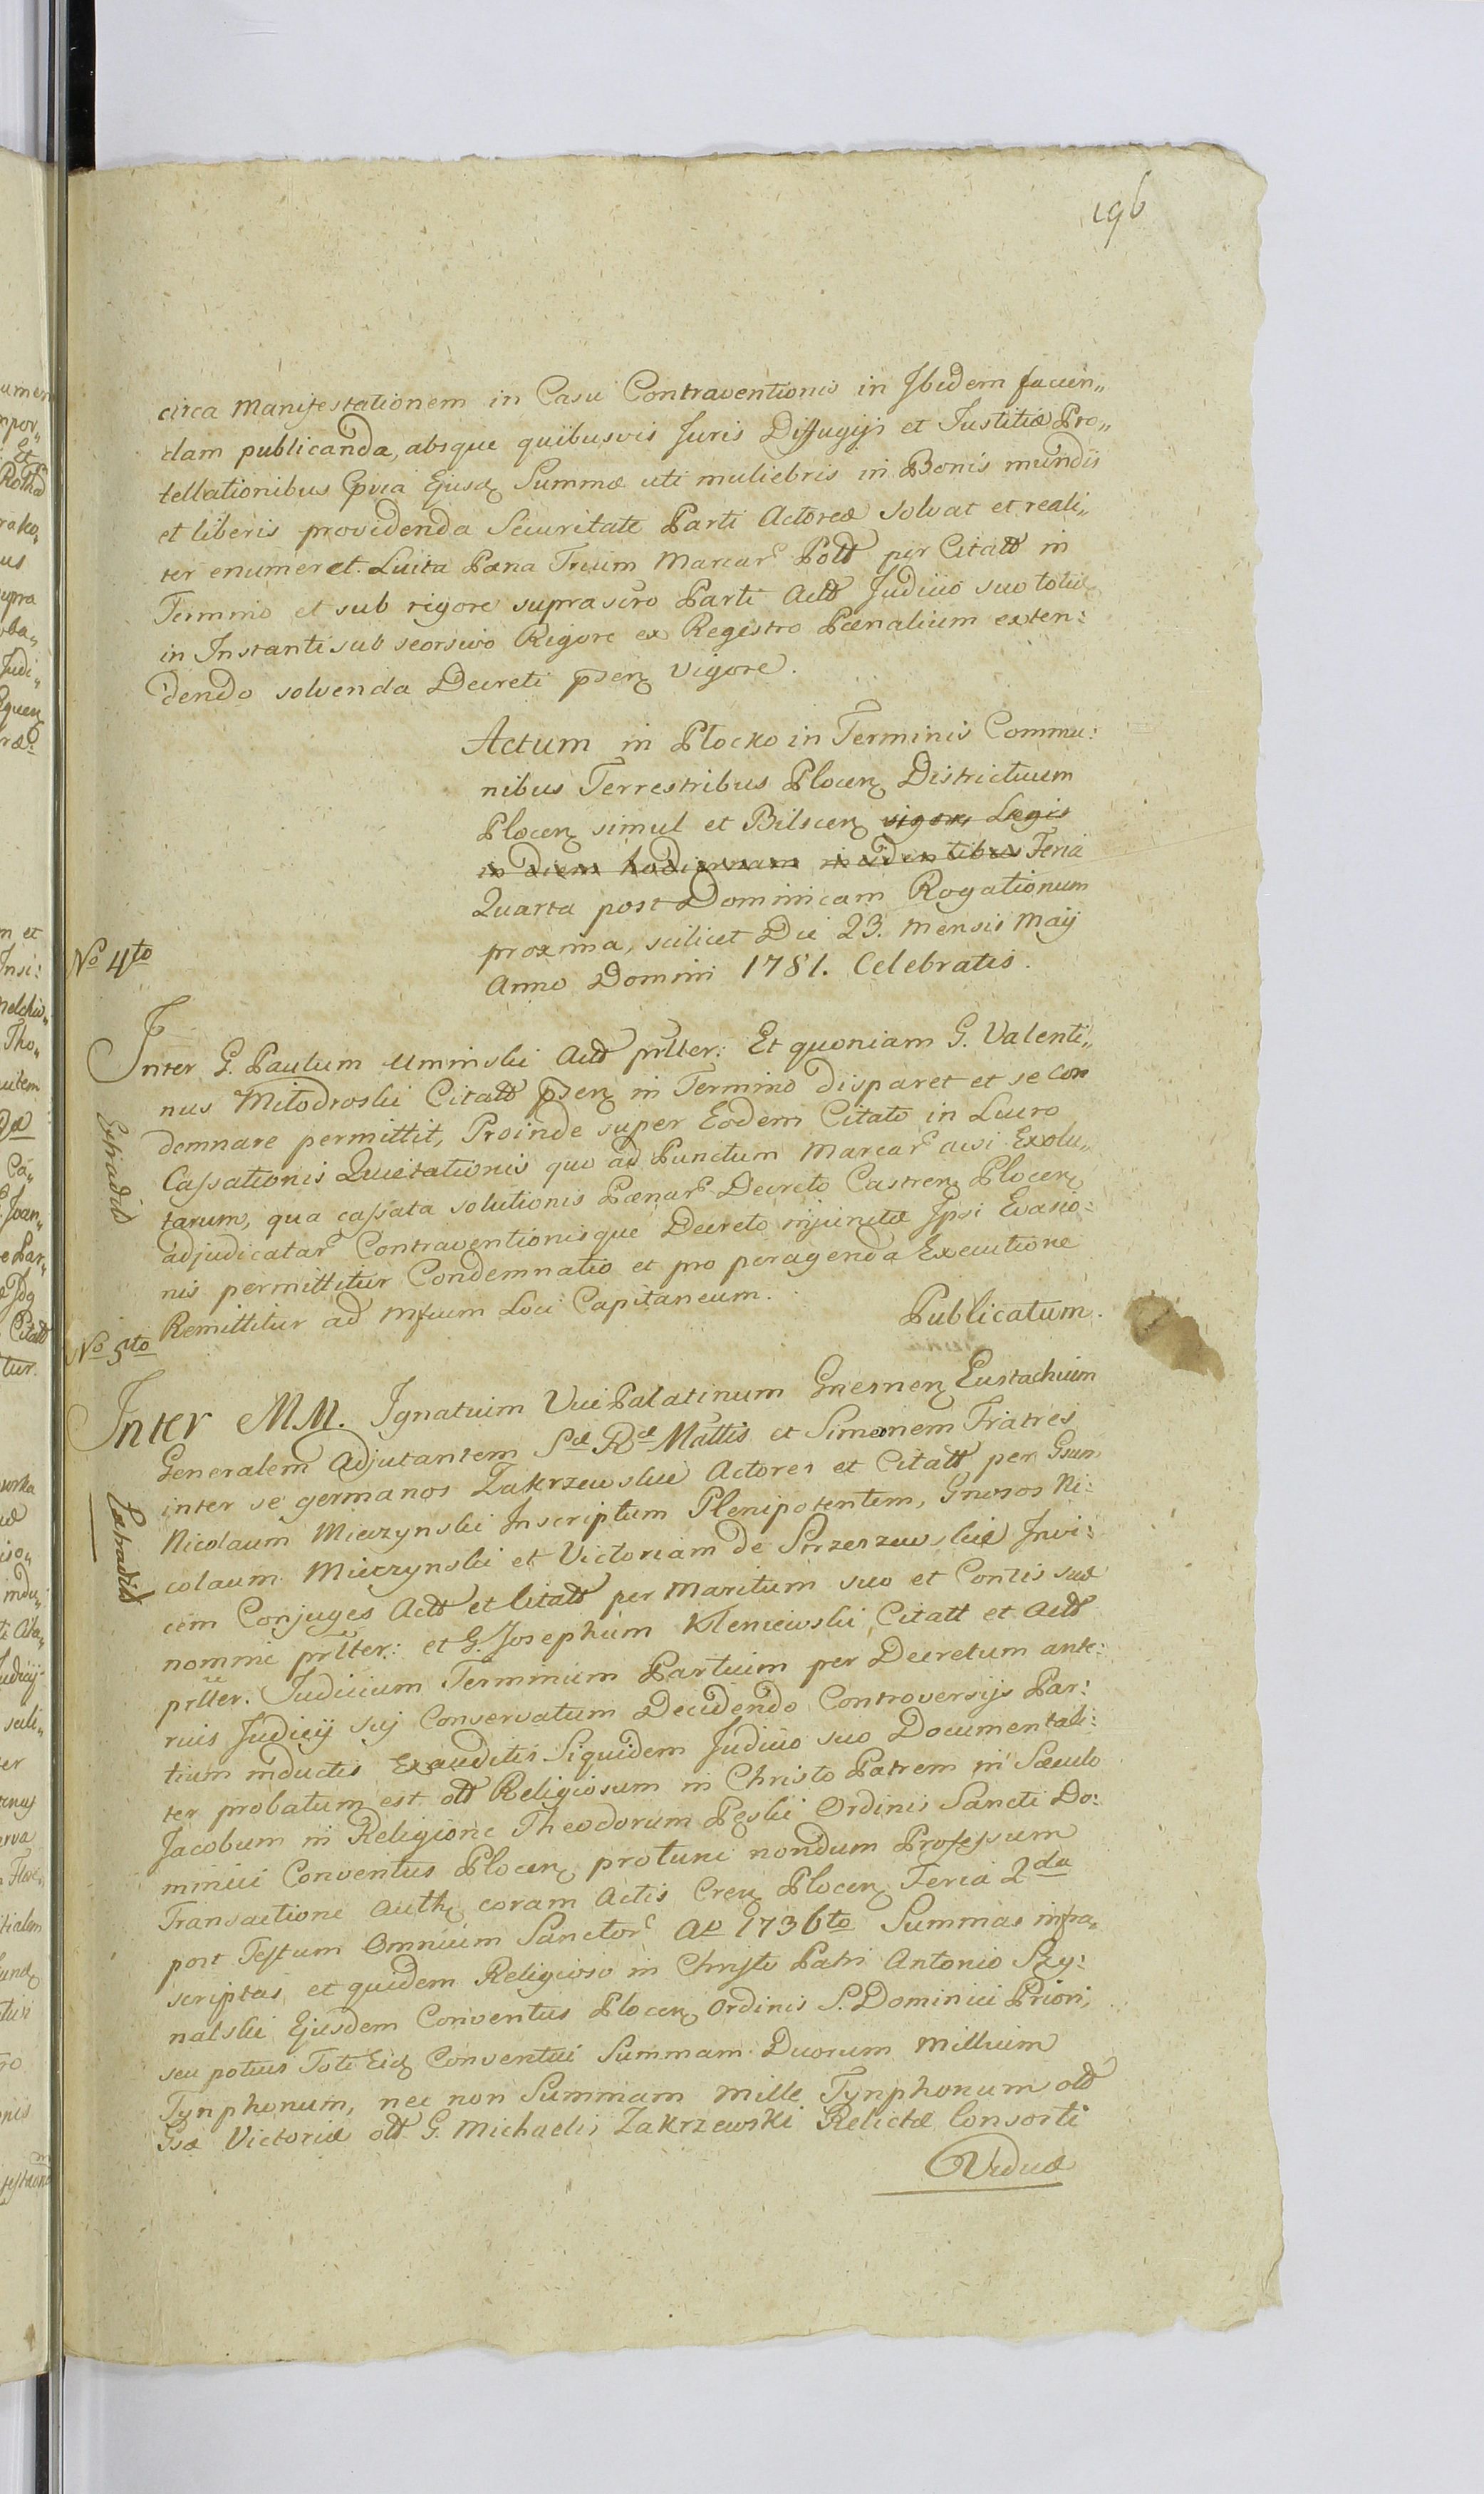 196
circa Manifestationem in Casu Contraventionis in Ibidem facien„
dam publicanda, absque quibusvis Juris Diffugijs et Justitiæ Pro„
tellationibus Ejusd Summæ uti muliebris in Bonis mundis
et liberis providenda Securitate Parti Actoreæ solvat et reali„
ter enumeret. Luita Pæna Trium Marcar Poltt per Citatt in
Termino et sub rigore suprascro Parti Actt Judicio suo
in Instanti sub seorsivo Rigore ex Regestro Pænalium exten:
dendo solvenda Decreti psen vigore.
Actum in Plocko in Terminis Commu:
nibus Terrestribus Plocen Districtuum
Plocen simul et Bilscen vigore Legis
in Diem hodiernam incidentibus Feria
Quarta post Dominicam Rogationum
proxima, scilicet Die 23. Mensis Maij
Anno Domini 1781. Celebratis.
No 4to
Inter G. Paulum Uminski Actt prlter: Et quoniam G. Valenti„
nus Miłodroski Citatt psen in Termino disparet et se con
demnare permittit, Proinde super Eodem Citato in Lucro
Extradid
Cassationis Quietationis quo ad Punctum Marcar acsi Exolu„
tarum, qua cassata solutionis Pænar Decreto Castren Plocen
adjudicatar Contraventionisque Decreto injunctæ Ipsi Evasio:
nis permittitur Condemnatio et pro peragenda Executione
Remittitur ad Mfcum Loci Capitaneum.
Publicatum.
No 5to
Inter M.M. Ignatium Vice Palatinum Gnesnen Eustachium
Generalem Adjutantem Sæ Ræ Mattis et Simonem Fratres
inter se germanos Zakrzewskie Actores et Citatt per Gsum
Nicolaum Mieczynski Inscriptum Plenipotentem, Gnosos Ni:
Extradid
colaum Mieczynski et Victoriam de Smrzewskie Invi:
cem Conjuges Actt et Citatt per Maritum suo et Contis suæ
nomine prlter: et G. Josephum Kleniewski Citatt et Actt
prlter. Judicium Terminum Partium per Decretum ante:
rius Judicij sui Conservatum Decidendo Controversijs Par:
tium inductis Exauditis Siquidem Judicio suo Documentali:
ter probatum est olt Religiosum in Christo Patrem in Sæculo
Jacobum in Religione Theodorum Pęski Ordinis Sancti Do:
minici Conventus Plocen protunc nondum Professum
Transactione Auth coram Actis Cren Plocen Feria 2da
post Festum Omnium Sanctor Ao 1736to Summas infra„
scriptas, et quidem Religioso in Christo Patri Antonio Szy:
nalski Ejusdem Conventus Plocen Ordinis S. Dominici Priori,
seu potius Toti Eid Conventui Summam Duorum Millium
Tynphonum, nec non Summam Mille Tynphonum olt
Gsæ Victoriæ olt G. Michaelis Zakrzewski Relictæ Consorti
Viduæ